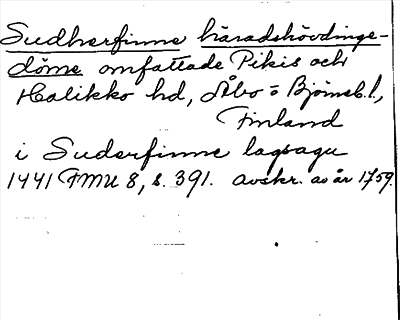 Sudherfinne häradshövdinge-
döme omfattade Pikis och
Halikko hd, Åbo o Björneb. l.,
Finland
i Suderfinne lagsagu
1441 FMU 8, s. 391. avskr. av år 1759.